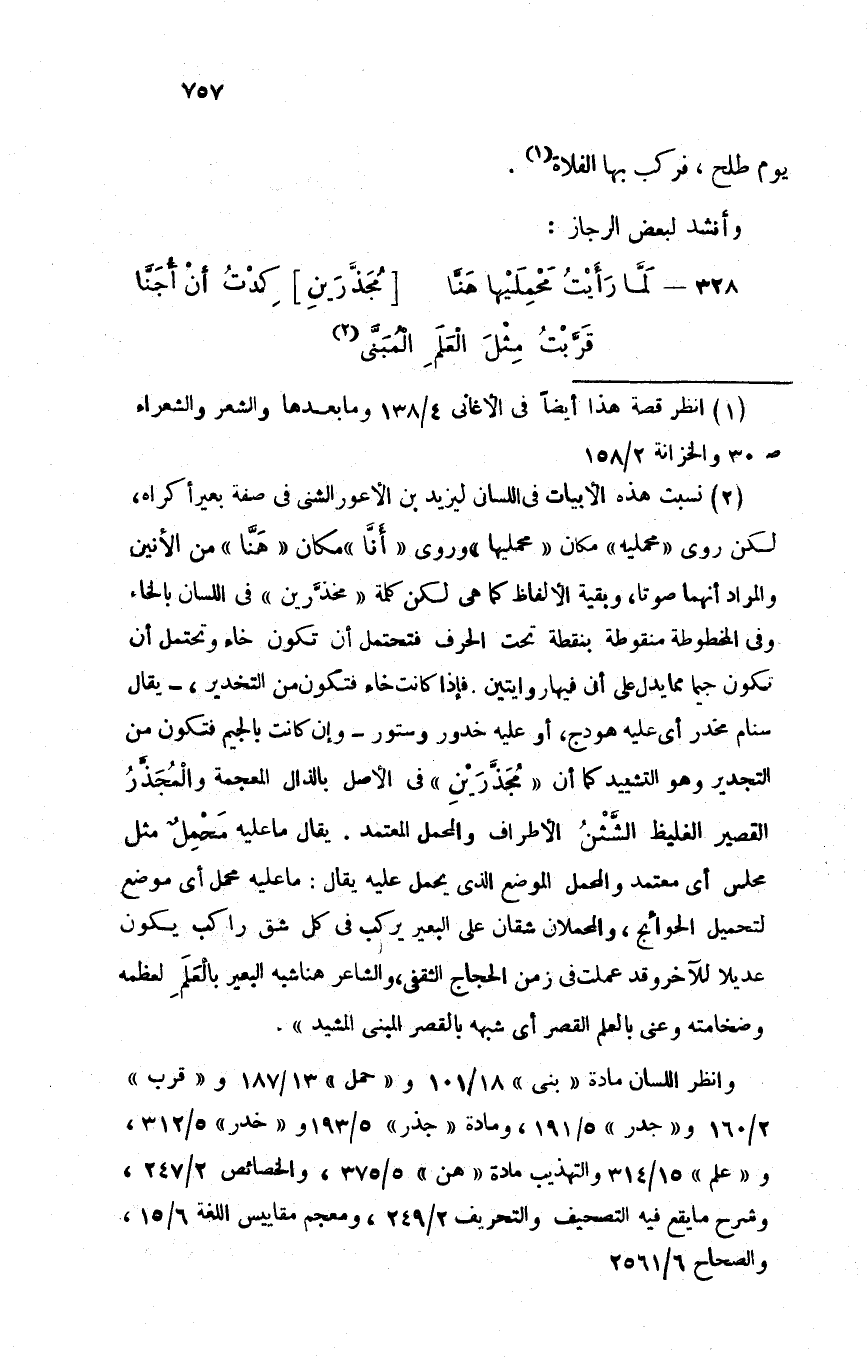 ٧٥٧
يوم طلح ، فركب بها الفلاة(١) .
وأنشد لبعض الرجاز :
٣٢٨ — لَمَّا رَأَيْتُ مَحْمِلَيْها هَنَّا [ مُجَذَّرَينِ ] كِدْتُ أنْ أُجَنَّا
قَرَّبْتُ مِثْلَ الْعَلَمِ الْمُبَنَّى(٢)
(١) انظر قصة هذا أيضاً فى الأغانى ١٣٨/٤ ومابعدها والشعر والشعراء
ص ٣٠ والخزانة ١٥٨/٢
(٢) نسبت هذه الأبيات فى اللسان ليزيد بن الأعور الشنى فى صفة بعير أكراه،
لكن روى «محمليه» مكان «محمليها» وروى « أَنَّا » مكان « هَنَّا » من الأنين
والمراد أنهما صوتا، وبقية الألفاظ كما هى لكن كلمة « مخذَّرين » فى اللسان بالخاء
وفى المخطوطة منقوطة بنقطة تحت الحرف فتحتمل أن تكون خاء وتحتمل أن
تكون جيما مما يدل على أن فيها روايتين . فإذا كانت خاء فتكون من التخدير ، ــ يقال
سنام مخدر أى عليه هودج، أو عليه خدور وستور ــ وإن كانت بالجيم فتكون من
التجدير وهو التشييد كما أن « مُجَذَّرَيْنِ » فى الأصل بالذال المعجمة والْمُجَذَّرُ
القصير الغليظ الشَّثْنُ الأطراف والمحمل المعتمد . يقال ماعليه مَحْمِلٌ مثل
مجلس أى معتمد والمحمل الموضع الذى يحمل عليه يقال : ماعليه محمل أى موضع
لتحميل الحوائج ، والمحملان شقان على البعير يركب فى كل شق راكب يكون
عديلا للآخر وقد عملت فى زمن الحجاج الثقفى، والشاعر هنا شبه البعير بالْعَلَمِ لعظمه
وضخامته وعنى بالعلم القصر أى شبهه بالقصر المبنى المشيد » .
وانظر اللسان مادة « بنى » ١٠١/١٨ و « حمل » ١٨٧/١٣ و « قرب »
١٦٠/٢ و« جدر » ١٩١/٥ ، ومادة « جذر » ١٩٣/٥ و « خدر» ٣١٢/٥ ،
و « علم » ٣١٤/١٥ والتهذيب مادة « هن » ٣٧٥/٥ ، والخصائص ٢٤٧/٢ ،
وشرح مايقع فيه التصحيف والتحريف ٢٤٩/٢ ، ومعجم مقاييس اللغة ١٥/٦ ،
والصحاح ٢٥٦١/٦